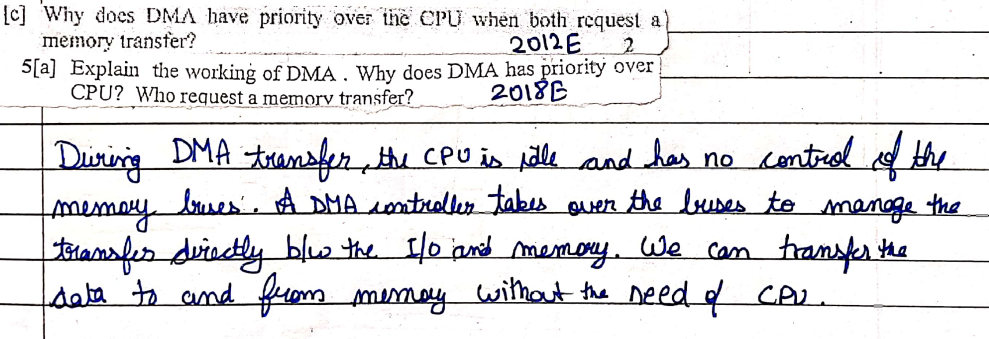 [c] Why does DMA have priority over the CPU when both request a
memory transfer? 2012E 2
5[a] Explain the working of DMA . Why does DMA has priority over
CPU? Who request a memory transfer? 2018B
During DMA transfer, the CPU is idle and has no control of the
memory buses. A DMA controller takes over the buses to manage the
transfer directly b/w the I/o and memory. We can transfer the
data to and from memory without the need of CPU.